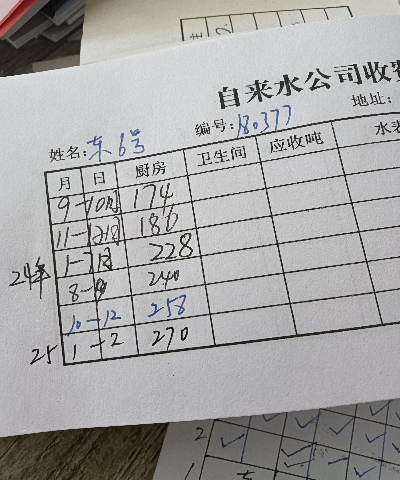 自来水公司收费
姓名: 东6号 编号: 180377 地址:
月 日 厨房 卫生间 应收吨 水表
9-10月 174
11-12月 186
24年 1-7月 228
8-9 240
10-12 258
25 1-2 270
2